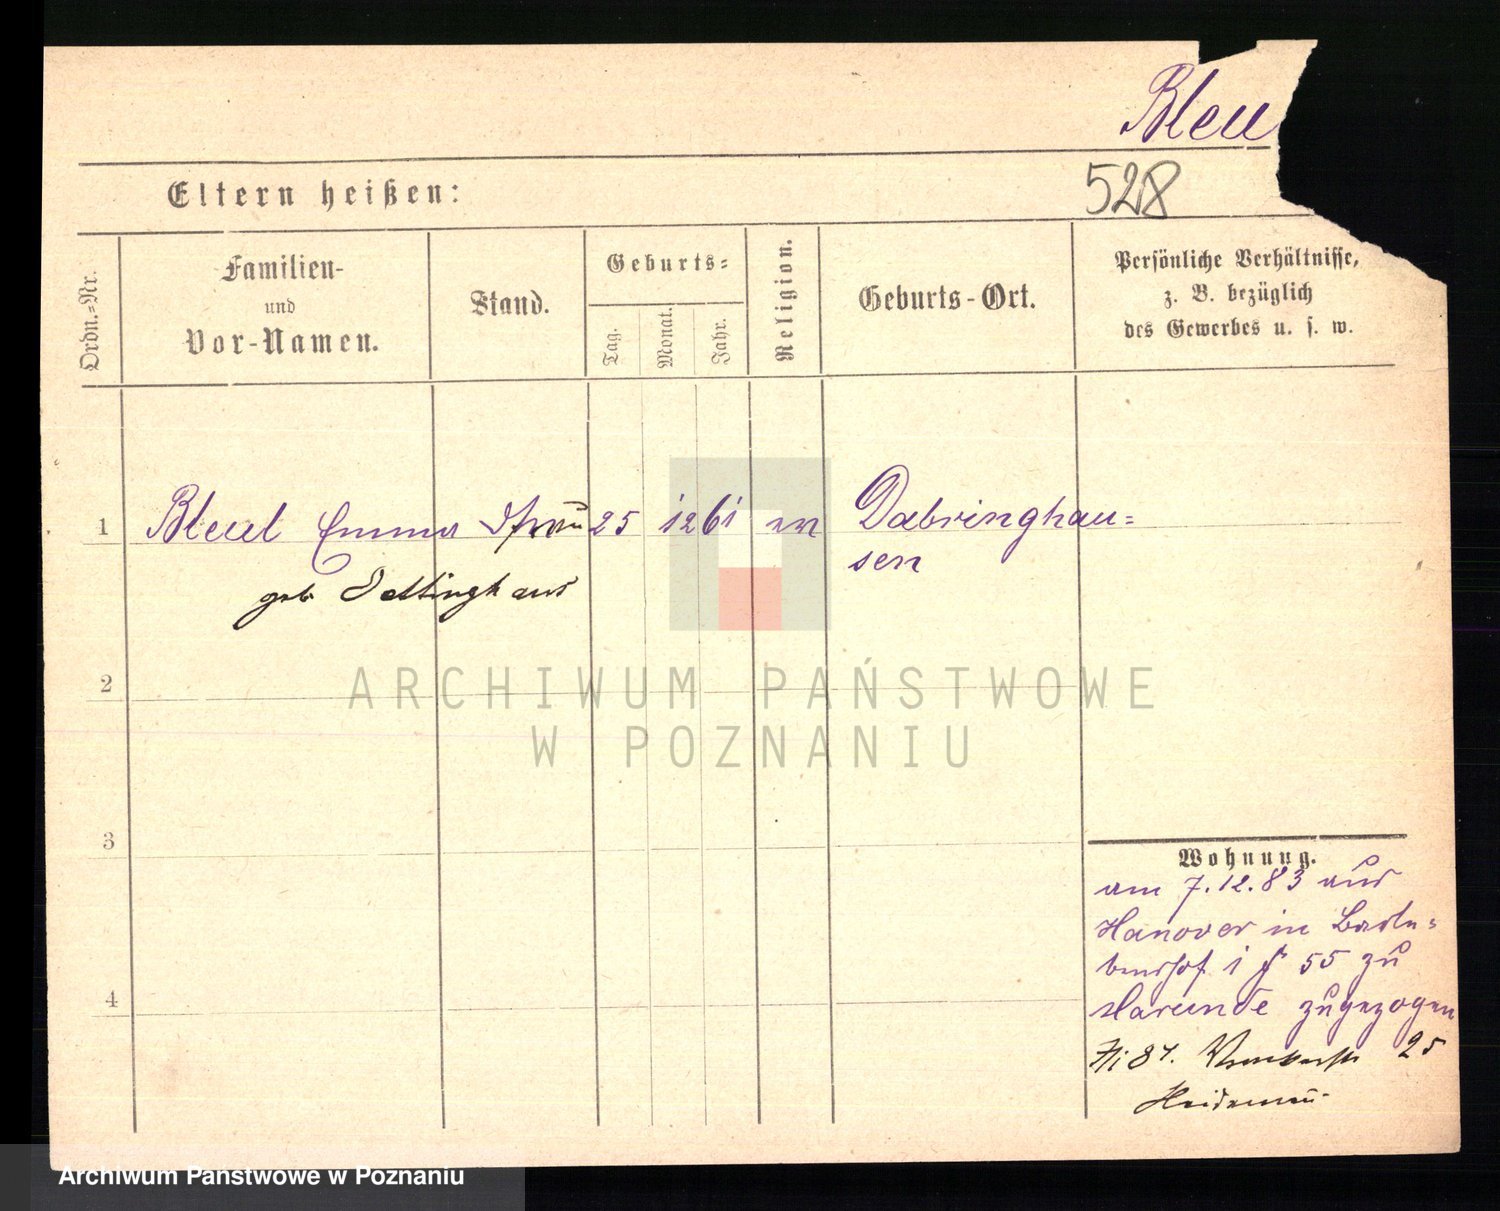 Bleu
Eltern heißen:
528
Ordn.-Nr.
Familien-
und
Vor-Namen.
Stand.
Geburts-
Tag.
Monat.
Jahr.
Religion.
Geburts-Ort.
Persönliche Verhältnisse,
z. B. bezüglich
des Gewerbes u. s. w.
1 Bleul Emma Frau 25 12 61 ev Dabringhau=
sen
geb Oettinghaus
2
3
4
Wohnung.
am 7.12.83 aus
Hanover in
55 zu
zugezogen
25
ARCHIWUM PAŃSTWOWE
W POZNANIU
Archiwum Państwowe w Poznaniu